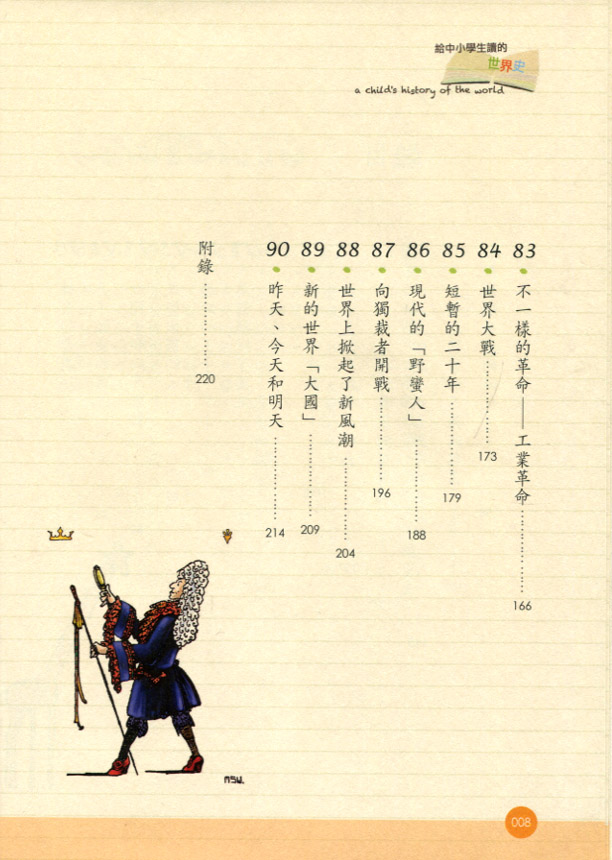 給中小學生讀的
世界史
a child's history of the world
83 不一樣的革命——工業革命 166
84 世界大戰 173
85 短暫的二十年 179
86 現代的「野蠻人」 188
87 向獨裁者開戰 196
88 世界上掀起了新風潮 204
89 新的世界「大國」 209
90 昨天、今天和明天 214
附錄 220
MSW.
008